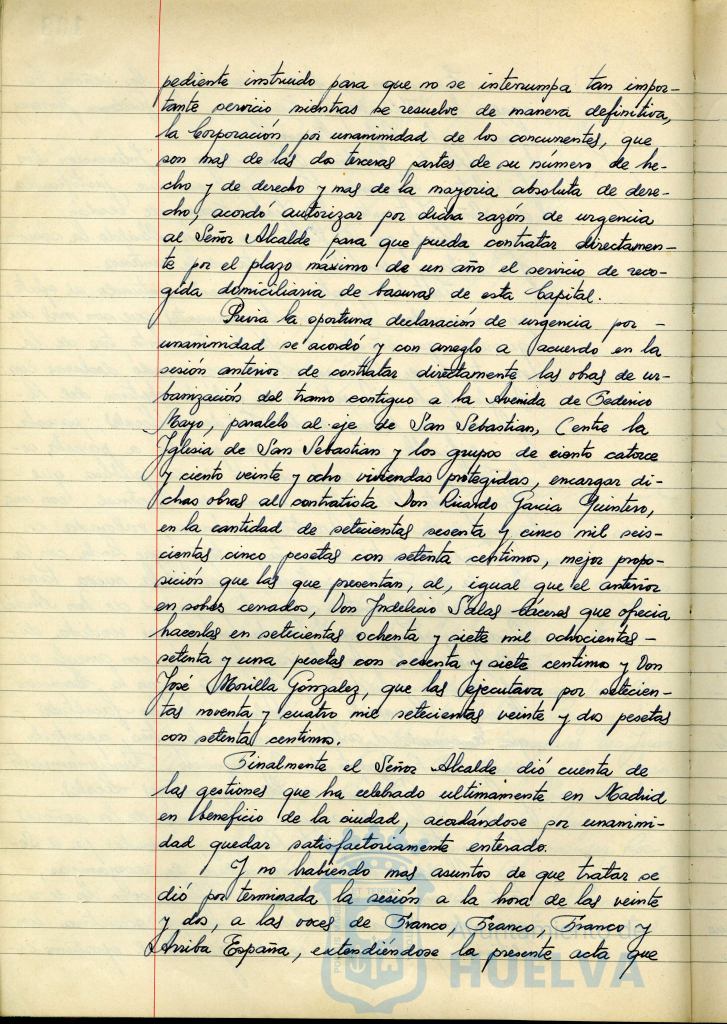 pediente instruido para que no se interrumpa tan impor-
tante servicio mientras se resuelve de manera definitiva,
la Corporación por unanimidad de los concurrentes, que
son mas de las dos terceras partes de su número de he-
cho y de derecho y mas de la mayoria absoluta de dere-
cho, acordó autorizar por dicha razón de urgencia
al Señor Alcalde para que pueda contratar directamen-
te por el plazo máximo de un año el servicio de reco-
gida domiciliaria de basuras de esta Capital.
Previa la oportuna declaración de urgencia por -
unanimidad se acordó y con arreglo a acuerdo en la
sesión anterior de contratar directamente las obras de ur-
banización del tramo contiguo a la Avenida de Federico
Mayo, paralelo al eje de San Sebastian, (entre la
Iglesia de San Sebastian y los grupos de ciento catorce
y ciento veinte y ocho viviendas protegidas, encargar di-
chas obras al contratista Don Ricardo Garcia Quintero,
en la cantidad de setecientas sesenta y cinco mil seis-
cientas cinco pesetas con setenta centimos, mejor propo-
sición que las que presentan, al, igual que el anterior
en sobres cerrados, Don Indelecio Salas Cáceres que ofrecia
hacerlas en setecientas ochenta y siete mil ochocientas -
setenta y una pesetas con setenta y siete centimo y Don
José Morilla Gonzalez, que las ejecutava por setecien-
tas noventa y cuatro mil setecientas veinte y dos pesetas
con setenta centimos.
Finalmente el Señor Alcalde dió cuenta de
las gestiones que ha celebrado ultimamente en Madrid
en beneficio de la ciudad, acordándose por unanimi-
dad quedar satisfactoriamente enterado.
Y no habiendo mas asuntos de que tratar se
dió por terminada la sesión a la hora de las veinte
y dos, a las voces de Franco, Franco, Franco y
Arriba España, extendiéndose la presente acta que
HUELVA